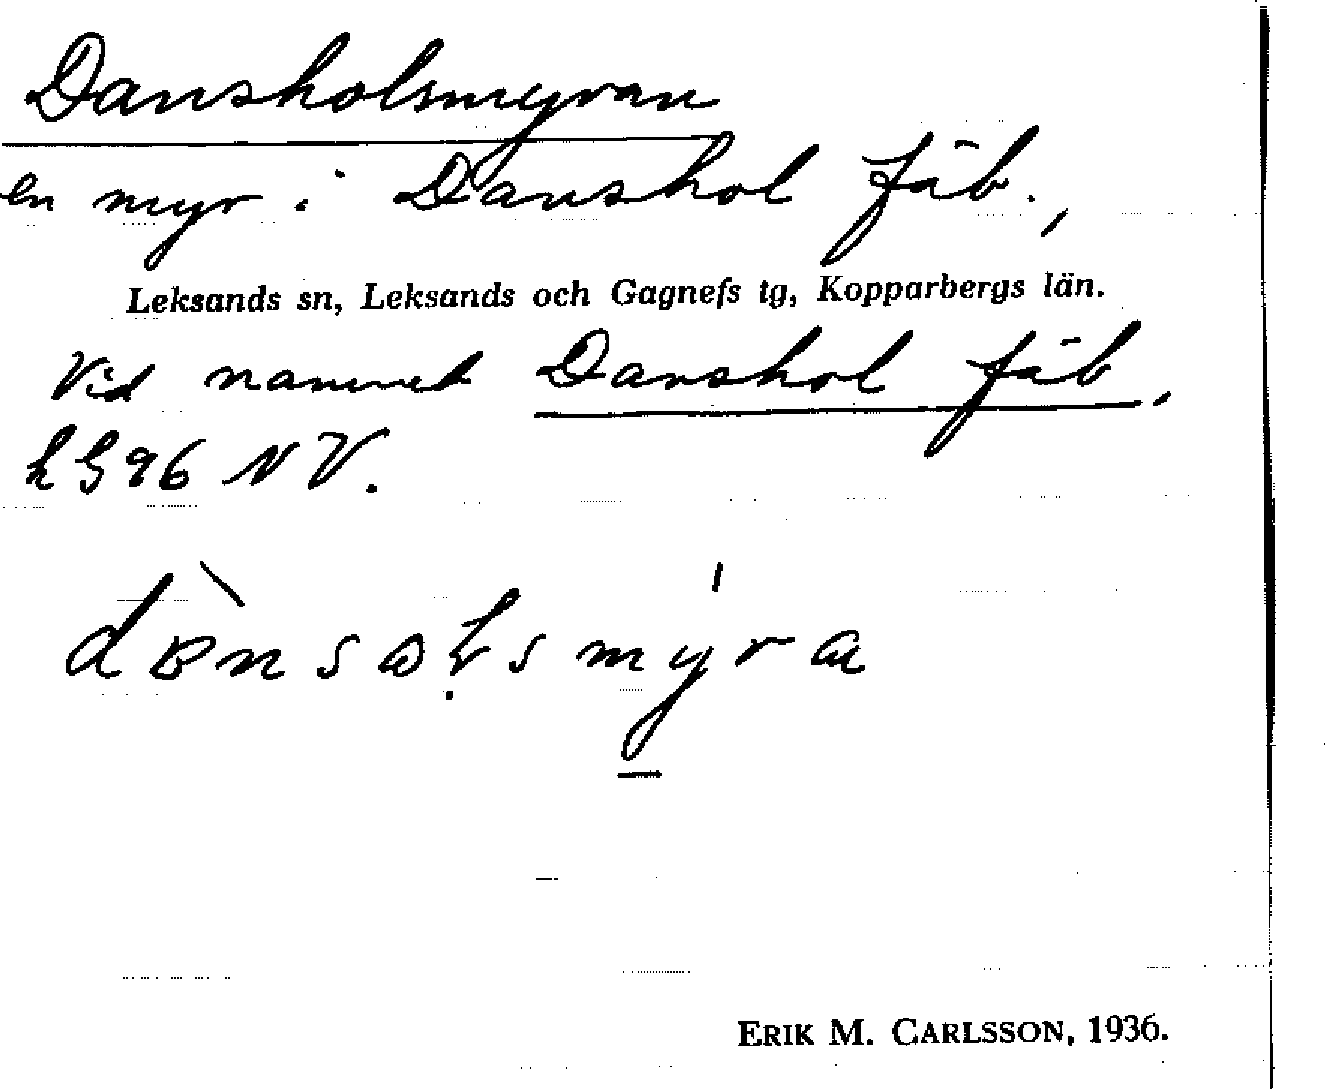 Dansholsmyran
en myr i Danshol fäb.,
Leksands sn, Leksands och Gagnefs tg, Kopparbergs län.
Vid namnet Danshol fäb,
96 NV.
Erik M. Carlsson, 1936.